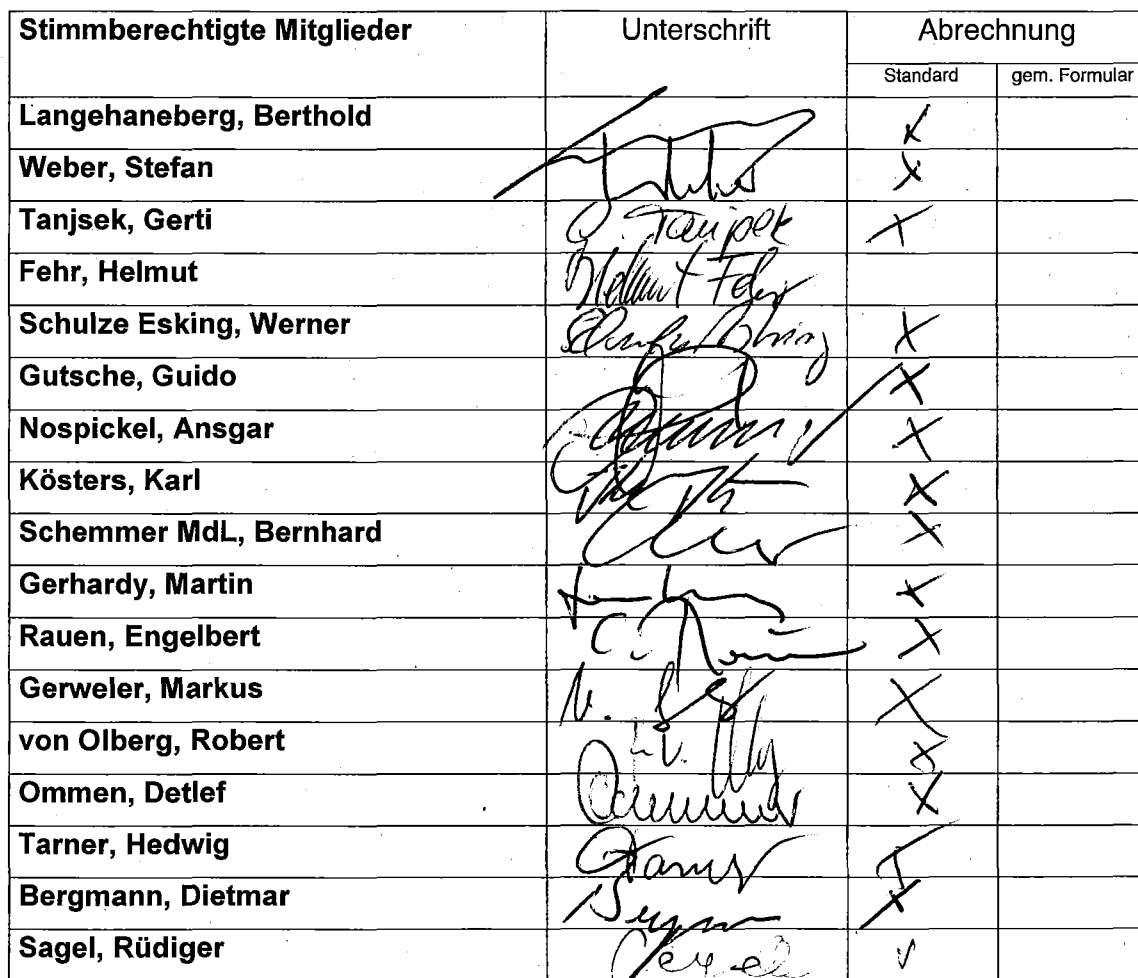 Stimmberechtigte Mitglieder Unterschrift Abrechnung
Standard gem. Formular
Langehaneberg, Berthold X
Weber, Stefan X
Tanjsek, Gerti G. Tanjsek X
Fehr, Helmut Helmut Fehr
Schulze Esking, Werner X
Gutsche, Guido X
Nospickel, Ansgar X
Kösters, Karl X
Schemmer MdL, Bernhard X
Gerhardy, Martin X
Rauen, Engelbert X
Gerweler, Markus X
von Olberg, Robert X
Ommen, Detlef X
Tarner, Hedwig Tarner
Bergmann, Dietmar X
Sagel, Rüdiger